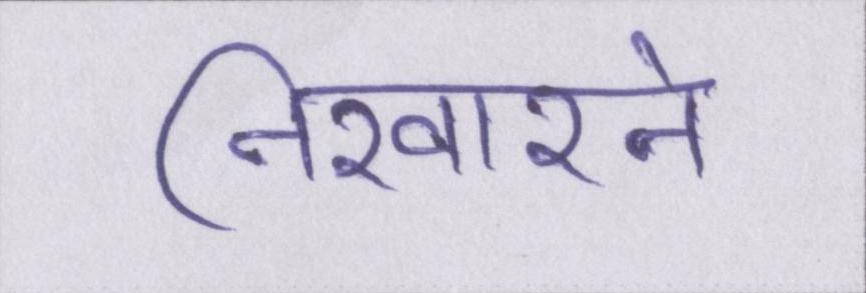 निखारने